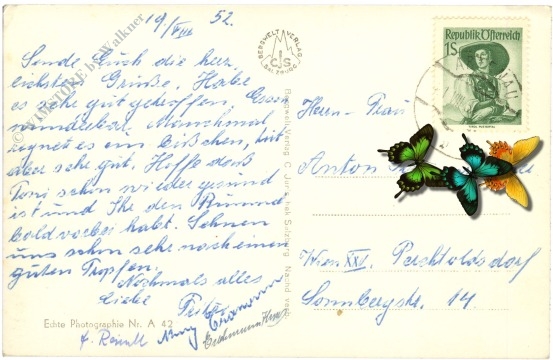 19/VIII 52.
Sende Euch die herz-
lichsten Grüße. Habe
es sehr gut getroffen. Essen
wunderbar. Manchmal
regnet es ein bißchen, tut
aber sehr gut. Hoffe daß
Toni schon wieder gesund
ist und Ihr den
bald vorbei habt. Sehnen
uns schon sehr nach einem
guten Tropfen.
Nochmals alles
Liebe
Echte Photographie Nr. A 42
© TIMSTORE by Walkner
BERGWELT VERLAG
CJS
SALZBURG
Bergwelt-Verlag C. Jurischek Salzburg Nachd. verb.
Republik Österreich
1S
Herrn - Frau
Anton
Wien XXV. Perchtoldsdorf
Sonnbergstr. 14.